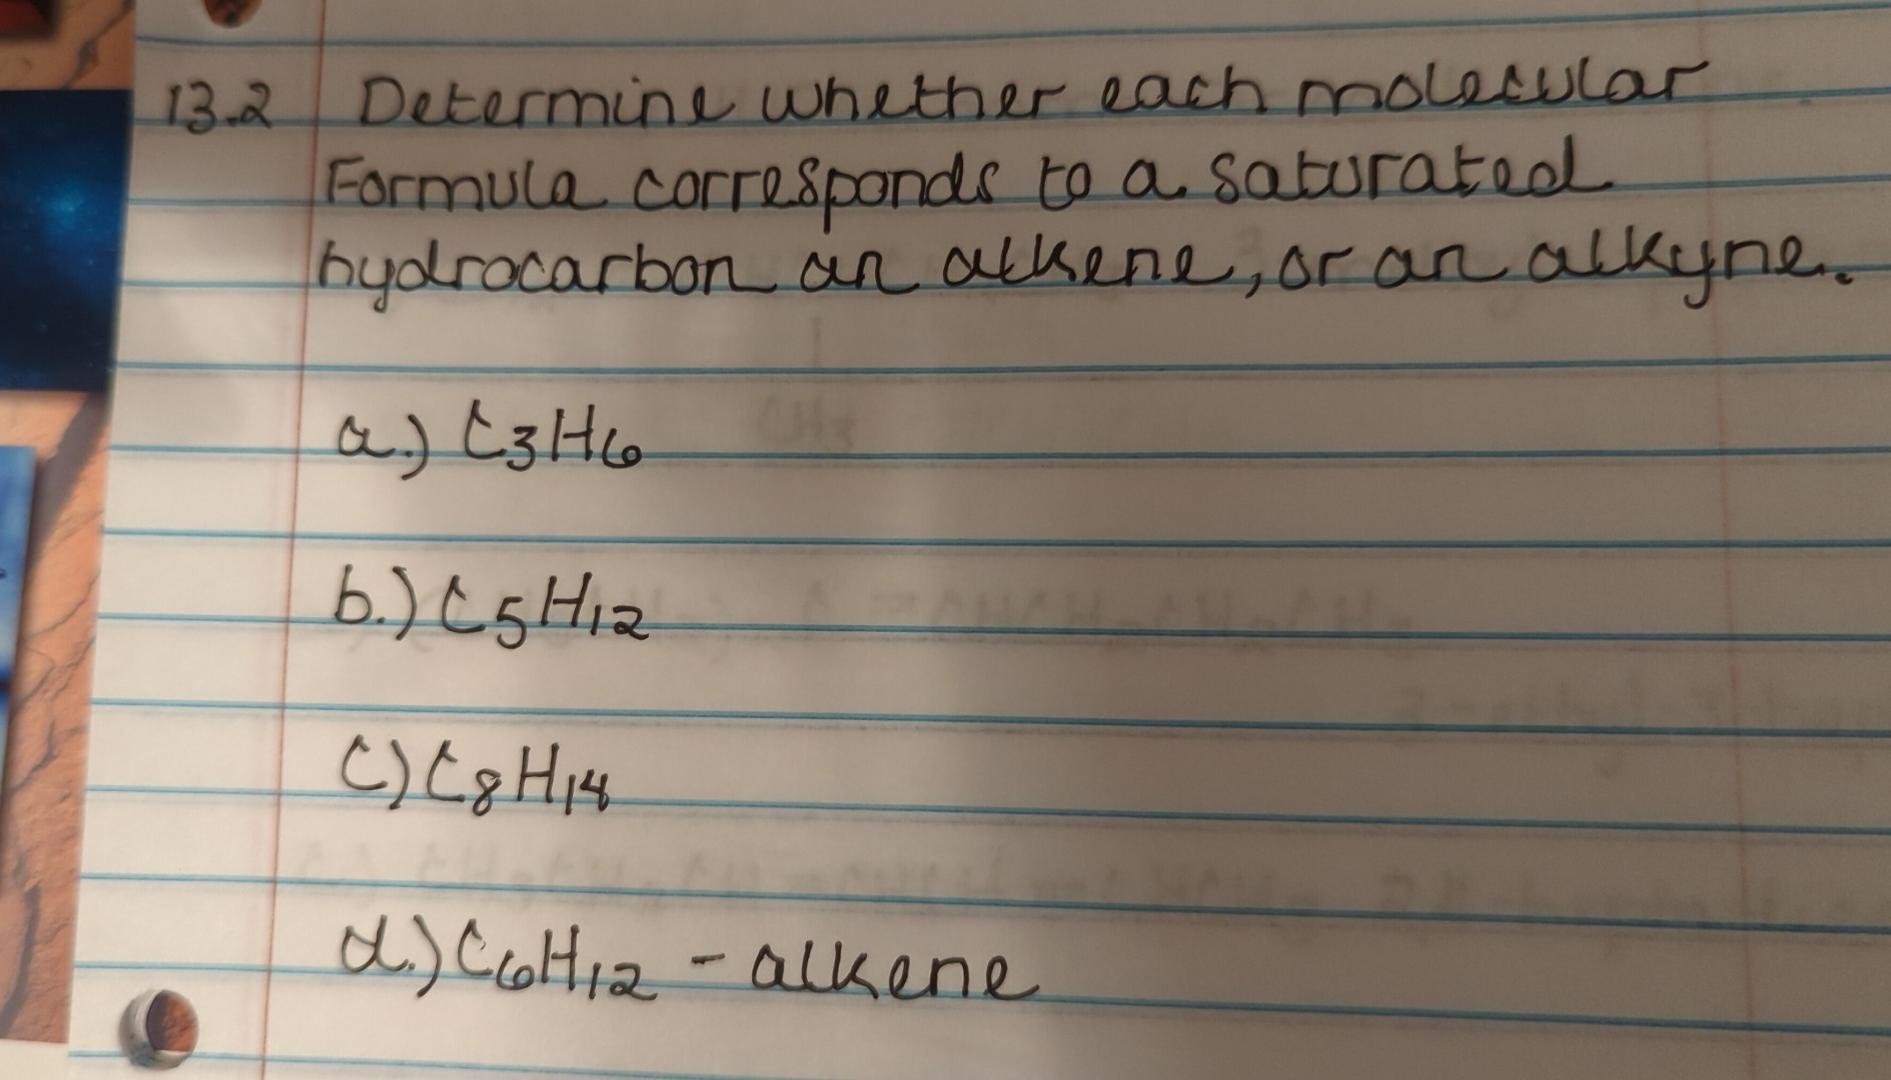 13.2 Determine whether each molecular
Formula corresponds to a saturated
hydrocarbon an alkene, or an alkyne.
a.) C3H6
b.) C5H12
c) C8H14
d.) C6H12 - alkene